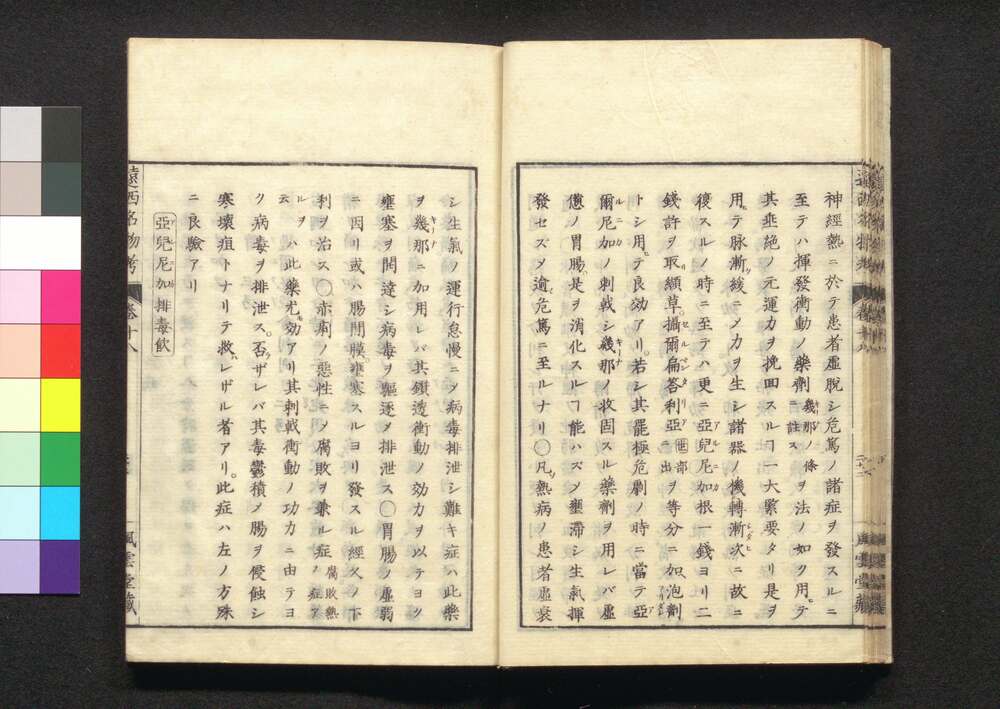 神經熱ニ於テ患者虛脫シ危篤ノ諸症ヲ發スルニ
至テハ揮發衝動ノ藥劑 幾那ノ條ニ註ス ヲ法ノ如ク用テ
其垂絶ノ元運力ヲ挽回スルヿ一大緊要タリ是ヲ
用テ脉漸緩ニメ力ヲ生シ諸器ノ機轉漸次ニ故ニ
復スルノ時ニ至テハ更ニ亞兒尼加根一錢ヨリ二
錢許ヲ取纈草攝爾扁答利亞 ニ出 ヲ等分ニ加泡劑
トシ用テ良効アリ若シ其罷極危劇ノ時ニ當テ亞
爾尼加ノ刺戟シ幾那ノ收固スル藥劑ヲ用レバ虛
憊ノ胃腸是ヲ消化スルヿ能ハズメ壅滯シ生氣揮
發セズメ逾危篤ニ至ルナリ○凡熱病ノ患者虛衰
シ生氣ノ運行怠慢ニメ病毒排泄シ難キ症ハ此藥
ヲ幾那ニ加用レバ其鑽透衝動ノ効力ヲ以テヨク
壅塞ヲ開達シ病毒ヲ驅逐メ排泄ス○胃腸ノ虛弱
ニ因リ或ハ腸間膜壅塞スルヨリ發スル經久ノ下
利ヲ治ス○赤痢ノ惡性ニメ腐敗ヲ兼ル症 腐敗熱ノ症ア
ルヲ云 ハ此藥尤効アリ其刺戟衝動ノ功力ニ由テヨ
ク病毒ヲ排泄ス否ザレバ其毒鬱積メ腸ヲ侵蝕シ
寒壞疽トナリテ救レザル者アリ此症ハ左ノ方殊
ニ良驗アリ
亞兒尼加排毒飲
遠西名物考 卷十八
風雲堂藏